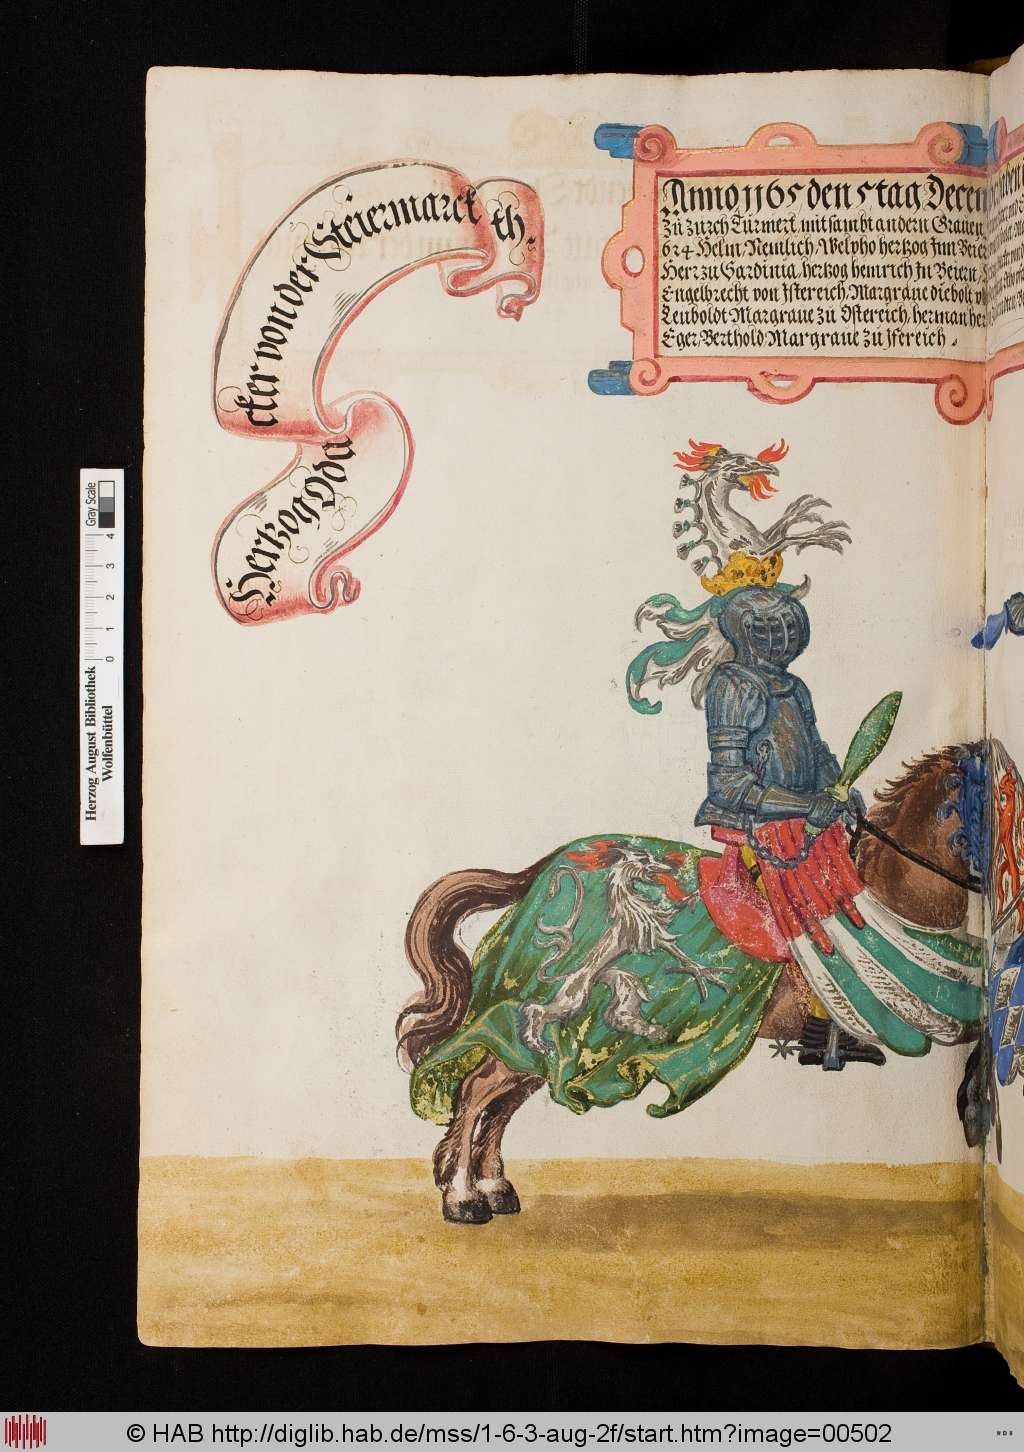 Hertzog Oda
cker von der Steiermarck
th.
Anno 1165 den 5 tag Decem
Zu Zurch Türniert, mit sambt andern Grauen
624 Helm, Nemlich, Welpho hertzog Jnn Beier
Herr zu Sardinia, hertzog heinrich Jn Beiern,
Engelbrecht von Jstereich, Margraue diebolt vo
Leuboldt Margraue zu Ostereich, herman her
Eger, Berthold Margraue zu Jstereich.
Herzog August Bibliothek
Wolfenbüttel
0 1 2 3 4
Gray Scale
© HAB http://diglib.hab.de/mss/1-6-3-aug-2f/start.htm?image=00502